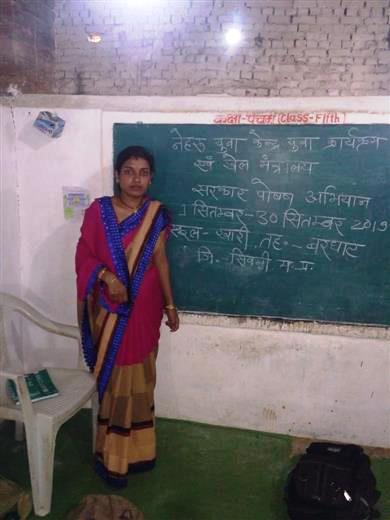 कक्षा-पंचम (Class-Fifth)
नेहरू युवा केन्द्र युवा कार्यक्रम
एवं खेल मंत्रालय
सरकार पोषण अभियान
1 सितम्बर-30 सितम्बर 2019
स्थल-खारी, तह.-बरघाट
जि.-सिवनी म.प्र.